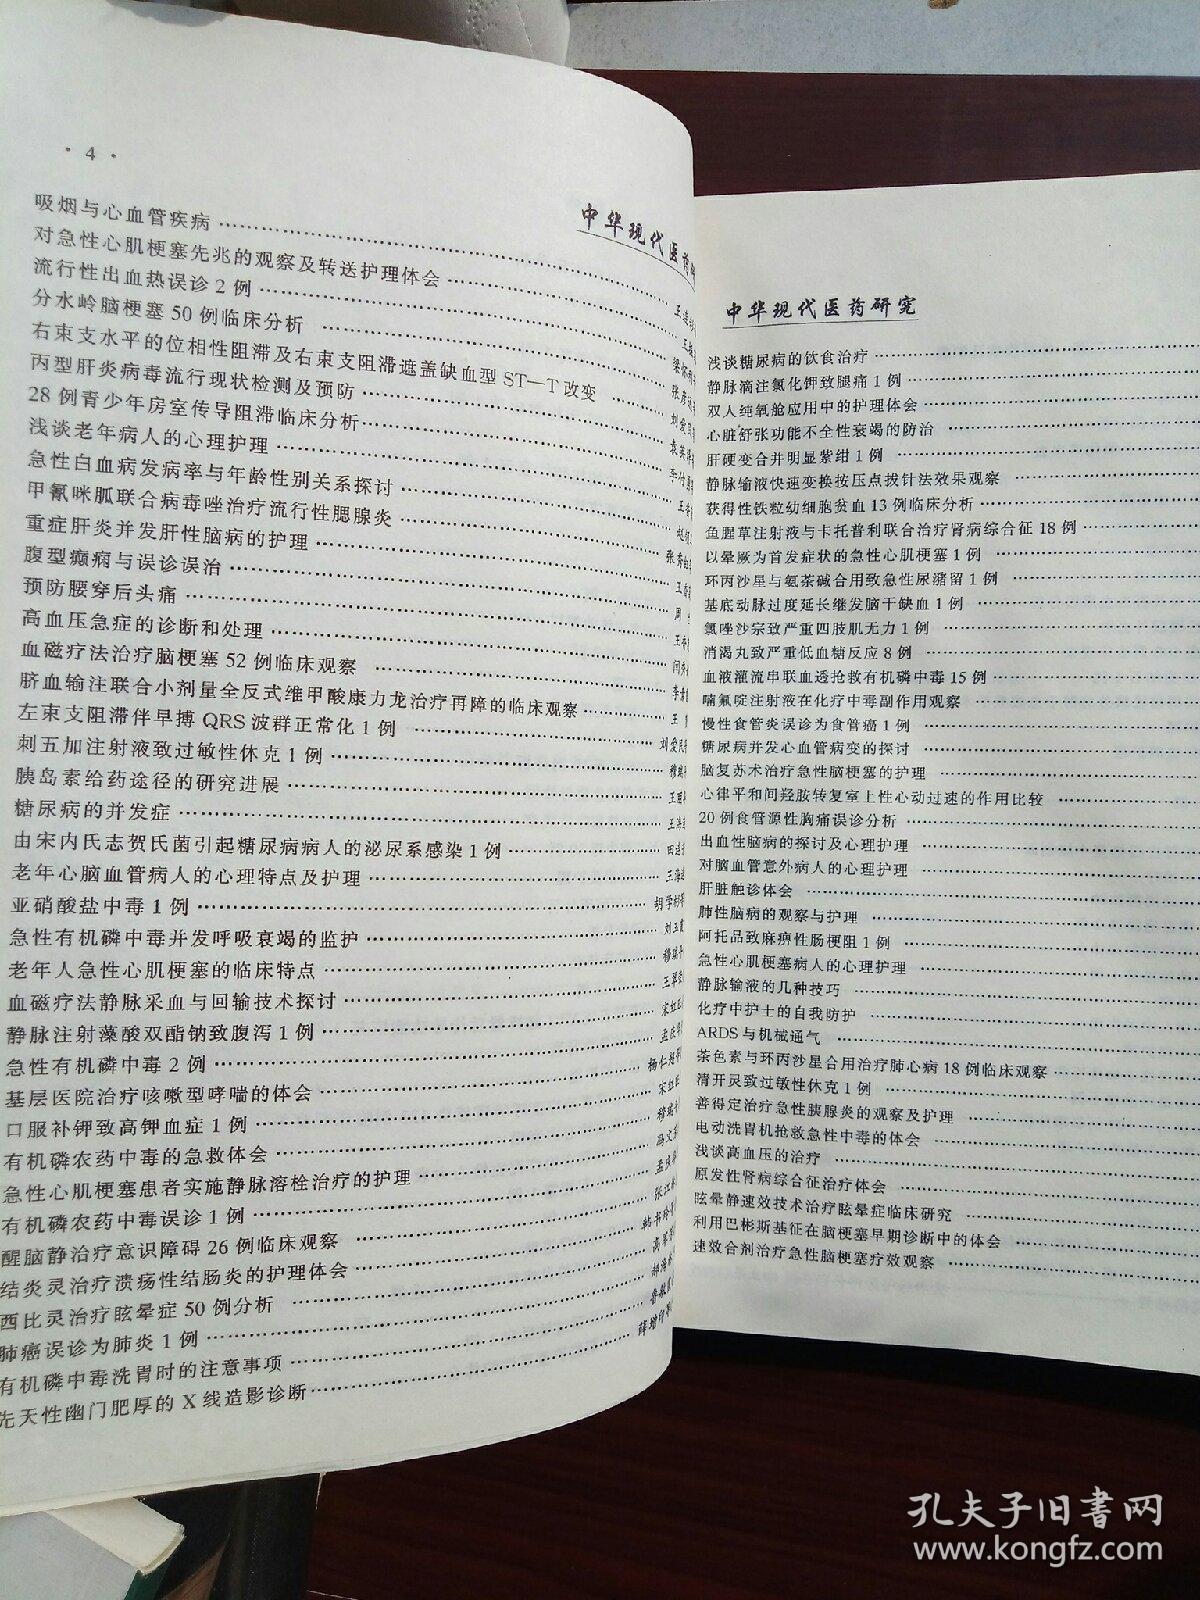 · 4 ·
中华现代医药
吸烟与心血管疾病
对急性心肌梗塞先兆的观察及转送护理体会
流行性出血热误诊2例
分水岭脑梗塞50例临床分析
右束支水平的位相性阻滞及右束支阻滞遮盖缺血型ST—T改变
丙型肝炎病毒流行现状检测及预防
28例青少年房室传导阻滞临床分析
浅谈老年病人的心理护理
急性白血病发病率与年龄性别关系探讨
甲氰咪胍联合病毒唑治疗流行性腮腺炎
重症肝炎并发肝性脑病的护理
腹型癫痫与误诊误治
预防腰穿后头痛
高血压急症的诊断和处理
血磁疗法治疗脑梗塞52例临床观察
脐血输注联合小剂量全反式维甲酸康力龙治疗再障的临床观察
左束支阻滞伴早搏QRS波群正常化1例
刺五加注射液致过敏性休克1例
胰岛素给药途径的研究进展
糖尿病的并发症
由宋内氏志贺氏菌引起糖尿病病人的泌尿系感染1例
老年心脑血管病人的心理特点及护理
亚硝酸盐中毒1例
急性有机磷中毒并发呼吸衰竭的监护
老年人急性心肌梗塞的临床特点
血磁疗法静脉采血与回输技术探讨
静脉注射藻酸双酯钠致腹泻1例
急性有机磷中毒2例
基层医院治疗咳嗽型哮喘的体会
口服补钾致高钾血症1例
有机磷农药中毒的急救体会
急性心肌梗塞患者实施静脉溶栓治疗的护理
有机磷农药中毒误诊1例
醒脑静治疗意识障碍26例临床观察
结炎灵治疗溃疡性结肠炎的护理体会
西比灵治疗眩晕症50例分析
肺癌误诊为肺炎1例
有机磷中毒洗胃时的注意事项
先天性幽门肥厚的X线造影诊断
中华现代医药研究
浅谈糖尿病的饮食治疗
静脉滴注氯化钾致腿痛1例
双人纯氧舱应用中的护理体会
心脏舒张功能不全性衰竭的防治
肝硬变合并明显紫绀1例
静脉输液快速变换按压点拔针法效果观察
获得性铁粒幼细胞贫血13例临床分析
鱼腥草注射液与卡托普利联合治疗肾病综合征18例
以晕厥为首发症状的急性心肌梗塞1例
环丙沙星与氨茶碱合用致急性尿潴留1例
基底动脉过度延长继发脑干缺血1例
氯唑沙宗致严重四肢肌无力1例
消渴丸致严重低血糖反应8例
血液灌流串联血透抢救有机磷中毒15例
喃氟啶注射液在化疗中毒副作用观察
慢性食管炎误诊为食管癌1例
糖尿病并发心血管病变的探讨
脑复苏术治疗急性脑梗塞的护理
心律平和间羟胺转复室上性心动过速的作用比较
20例食管源性胸痛误诊分析
出血性脑病的探讨及心理护理
对脑血管意外病人的心理护理
肝脏触诊体会
肺性脑病的观察与护理
阿托品致麻痹性肠梗阻1例
急性心肌梗塞病人的心理护理
静脉输液的几种技巧
化疗中护士的自我防护
ARDS与机械通气
茶色素与环丙沙星合用治疗肺心病18例临床观察
清开灵致过敏性休克1例
善得定治疗急性胰腺炎的观察及护理
电动洗胃机抢救急性中毒的体会
浅谈高血压的治疗
原发性肾病综合征治疗体会
眩晕静速效技术治疗眩晕症临床研究
利用巴彬斯基征在脑梗塞早期诊断中的体会
速效合剂治疗急性脑梗塞疗效观察
孔夫子旧书网
www.kongfz.com